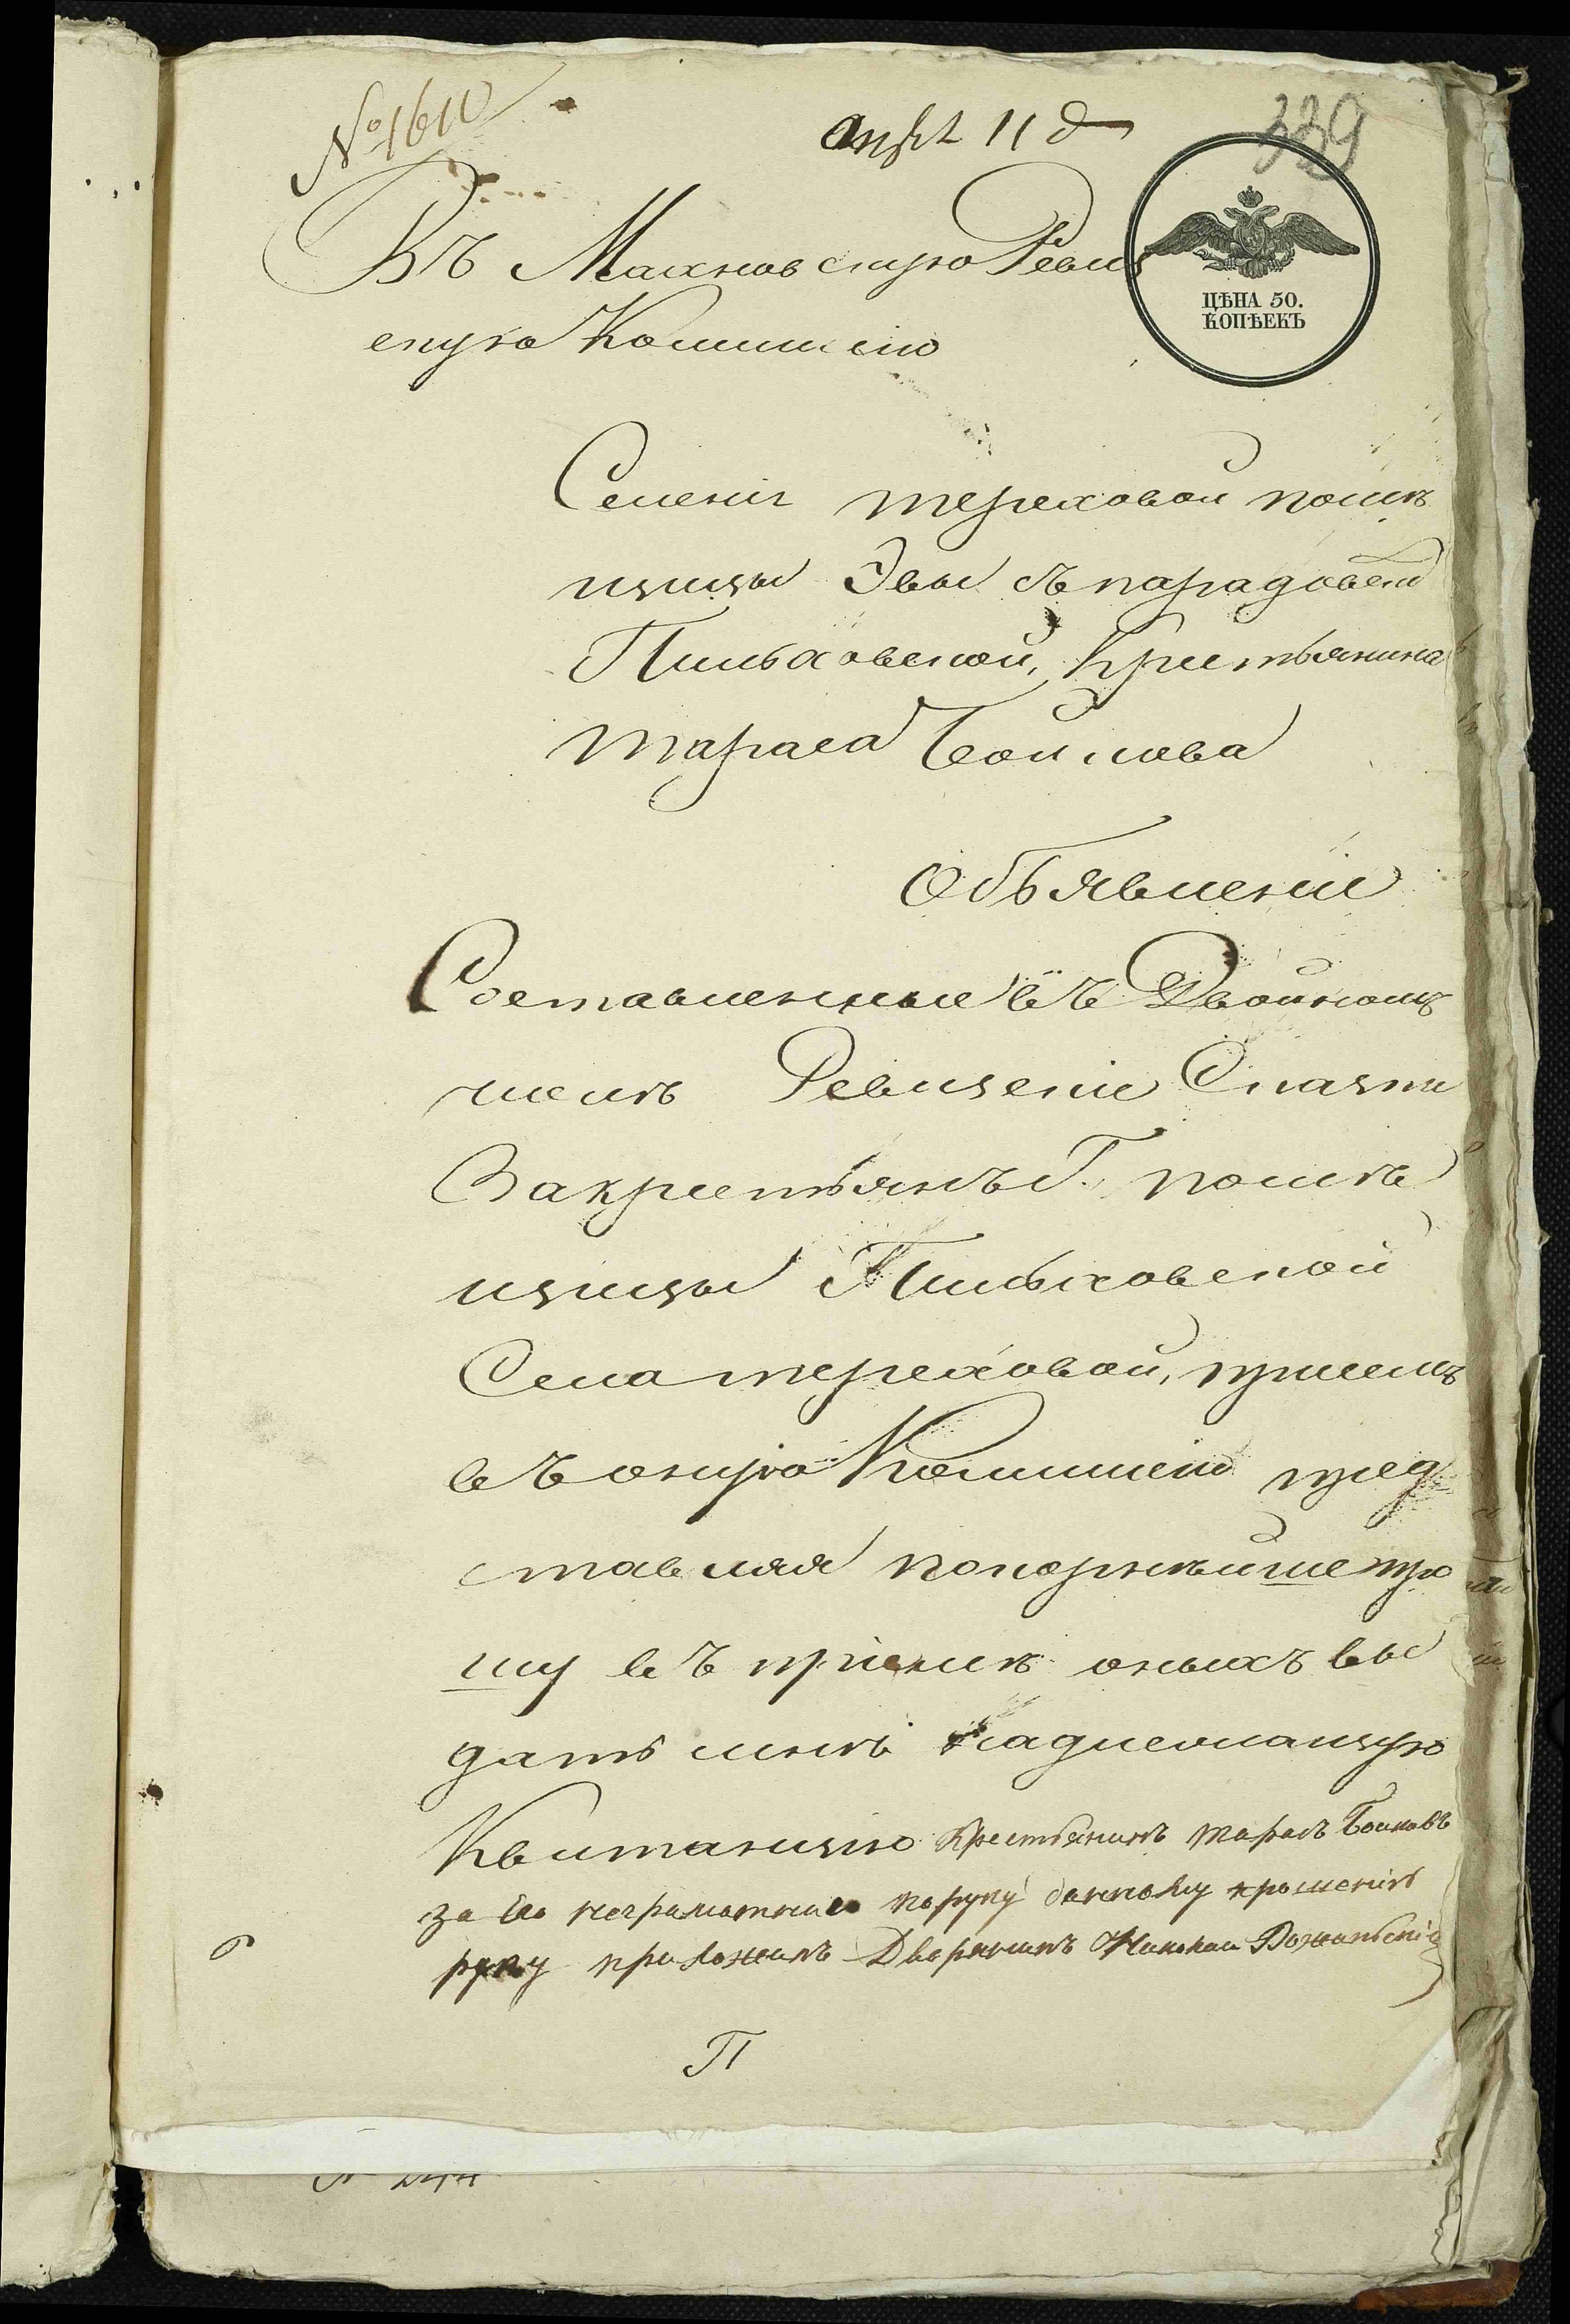 № 1610
апрѣл 11 д
339
ЦѢНА 50.
КОПѢЕКЪ
Въ Махновскую Ревиз
скую Комиссію
Селенія тереховой помѣ
щицы Эвы съ нарадовск
Пильховской, Крестьянина
тараса Бойкова
Объявленіе
Составленные въ Двойномъ
числѣ Ревизскіе Сказки
За крестьянъ Г. помѣ
щицы Пильховской
Села тереховой, при семъ
въ оную Коммисію пред
ставляя покорнѣйше про
шу въ пріемѣ оныхъ вы
дать мнѣ надлежащую
Квитанцію Крестьянинъ тарасъ Бойковъ
за его неграмотнаго поруку данному прошенію
руку приложилъ Дворянинъ Николай
П